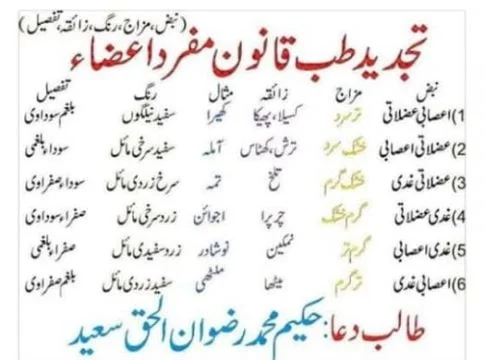 (نبض، مزاج، رنگ، زائقہ، تفصیل)
تجدید طب قانون مفرد اعضاء
نبض مزاج زائقہ مثال رنگ تفصیل
1)اعصابی عضلاتی ترسرد کسیلا، پھیکا کھیرا سفید نیلگوں بلغم سوداوی
2)عضلاتی اعصابی خشک سرد ترش،کھٹاس آملہ سفید سرخی مائل سوداء بلغمی
3)عضلاتی غدی خشک گرم تلخ تمہ سرخ زردی مائل سوداء صفراوی
4)غدی عضلاتی گرم خشک چرپرا اجوائن زرد سرخی مائل صفراء سوداوی
5)غدی اعصابی گرم تر نمکین نوشادر زرد سفیدی مائل صفراء بلغمی
6)اعصابی غدی تر گرم میٹھا ملٹھی سفید زردی مائل بلغم صفراوی
طالب دعا: حکیم محمد رضوان الحق سعید